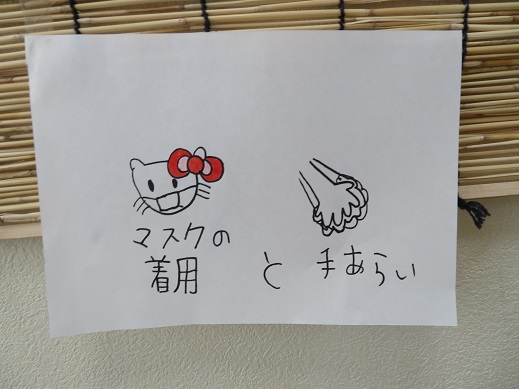 マスクの
着用 と 手あらい